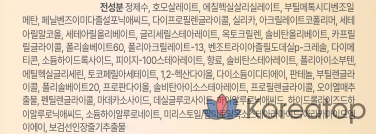 전성분 정제수, 호모살레이트, 에칠헥실살리실레이트, 부틸메톡시디벤조일
메탄, 페닐벤즈이미다졸설포닉애씨드, 다이프로필렌글라이콜, 실리카, 아크릴레이트코폴리머, 세테
아릴알코올, 세테아릴올리베이트, 글리세릴스테아레이트, 옥토크릴렌, 솔비탄올리베이트, 카프릴
릴글라이콜, 폴리솔베이트60, 폴리아크릴레이트-13, 벤즈트리아졸릴도데실p-크레솔, 다이메
티콘, 소듐하이드록사이드, 피이지-100스테아레이트, 향료, 솔비탄스테아레이트, 폴리아이소부텐,
에틸헥실글리세린, 토코페릴아세테이트, 1,2-헥산다이올, 다이소듐이디티에이, 판테놀, 부틸렌글라이
콜, 폴리솔베이트20, 프로판다이올, 솔비탄아이소스테아레이트, 프로필렌글라이콜, 오이열매추
출물, 펜틸렌글라이콜, 마데카소사이드, 데실글루코사이드, 하이알루로닉애씨드, 하이드롤라이즈드하
이알루로닉애씨드, 소듐하이알루로네이트, 미리스토일
이에이, 보검선인장줄기추출물
Koreadepo